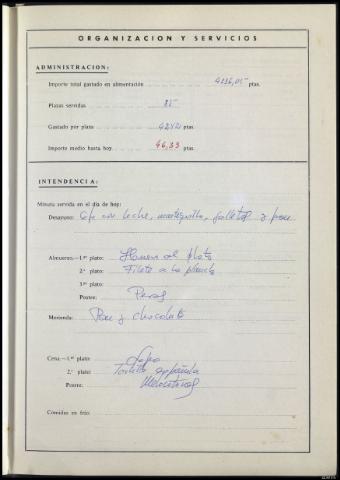 ORGANIZACION Y SERVICIOS
ADMINISTRACION:
Importe total gastado en alimentación 4036,05 ptas.
Plazas servidas 85
Gastado por plaza ptas.
Importe medio hasta hoy 46,33 ptas.
INTENDENCIA:
Minuta servida en el día de hoy:
Desayuno: Cafe con leche, mantequilla, galletas y pan
Almuerzo:—1.er plato: Huevos al plato
2.º plato: Filete a la plancha
3.er plato:
Postre: Peras
Merienda: Pan y chocolate
Cena:—1.er plato: Sopa
2.º plato: Tortilla española
Postre: Melocotones
Comidas en frío: